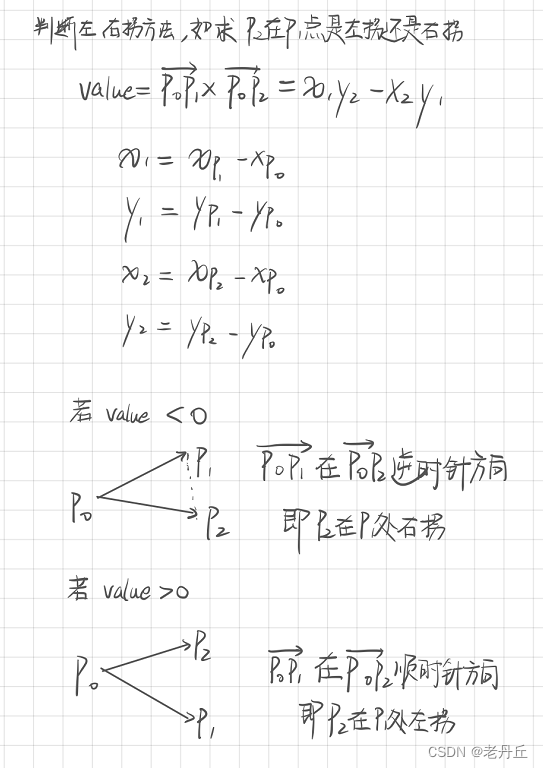 判断左右拐方法,如求 P₂在P₁点是左拐还是右拐
value= P₀P₁× P₀P₂ = x₁y₂ -x₂y₁
x₁ = xP₁ -xP₀
y₁ = yP₁ - yP₀
x₂ = xP₂ - xP₀
y₂ = yP₂ - yP₀
若 value < 0
P₁
P₀P₁ 在 P₀P₂ 逆时针方向
P₀
P₂
即 P₂在P处右拐
若 value >0
P₂
P₀
P₀P₁ 在 P₀P₂ 顺时针方向
P₁
即 P₂在P处左拐
CSDN @老丹丘